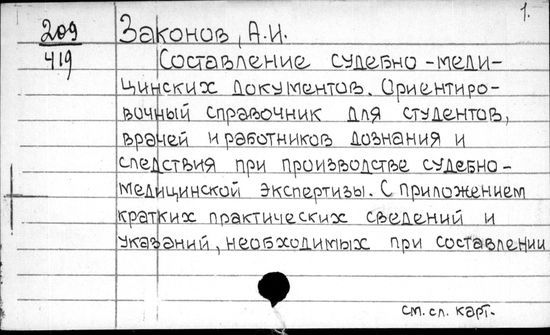 1.
209
419
Законов, А.И.
Составление судебно-меди-
цинских документов. Ориентиро-
вочный справочник для студентов,
врачей и работников дознания и
следствия при производстве судебно-
медицинской экспертизы. С приложением
кратких практических сведений и
указаний, необходимых при составлении
см. сл. карт.